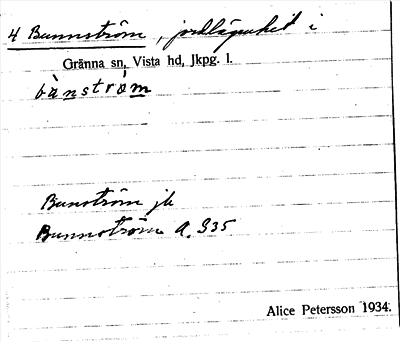 4 Bunnström, jordlägenhet i
Gränna sn, Vista hd, Jkpg. l.
bànström
Bunström jb
Bunnström A. 335
Alice Petersson 1934.